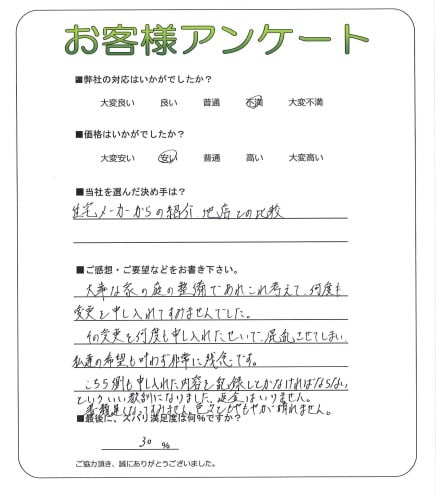 お客様アンケート
■弊社の対応はいかがでしたか？
大変良い 良い 普通 不満 大変不満
■価格はいかがでしたか？
大変安い 安い 普通 高い 大変高い
■当社を選んだ決め手は？
住宅メーカーからの紹介、他店との比較
■ご感想・ご要望などをお書き下さい。
大事な家の庭の整備であれこれ考えて、何度も
変更を申し入れてすみませんでした。
その変更を何度も申し入れたせいで、混乱させてしまい、
私達の希望も叶わず非常に残念です。
こちら側も申し入れた内容を記録しとかなければならない
といういい教訓になりました。返金はいりません。
書類遅くなってすみません。色々ともやもやが晴れません。
■最後に、ズバリ満足度は何%ですか？
30 %
ご協力頂き、誠にありがとうございました。